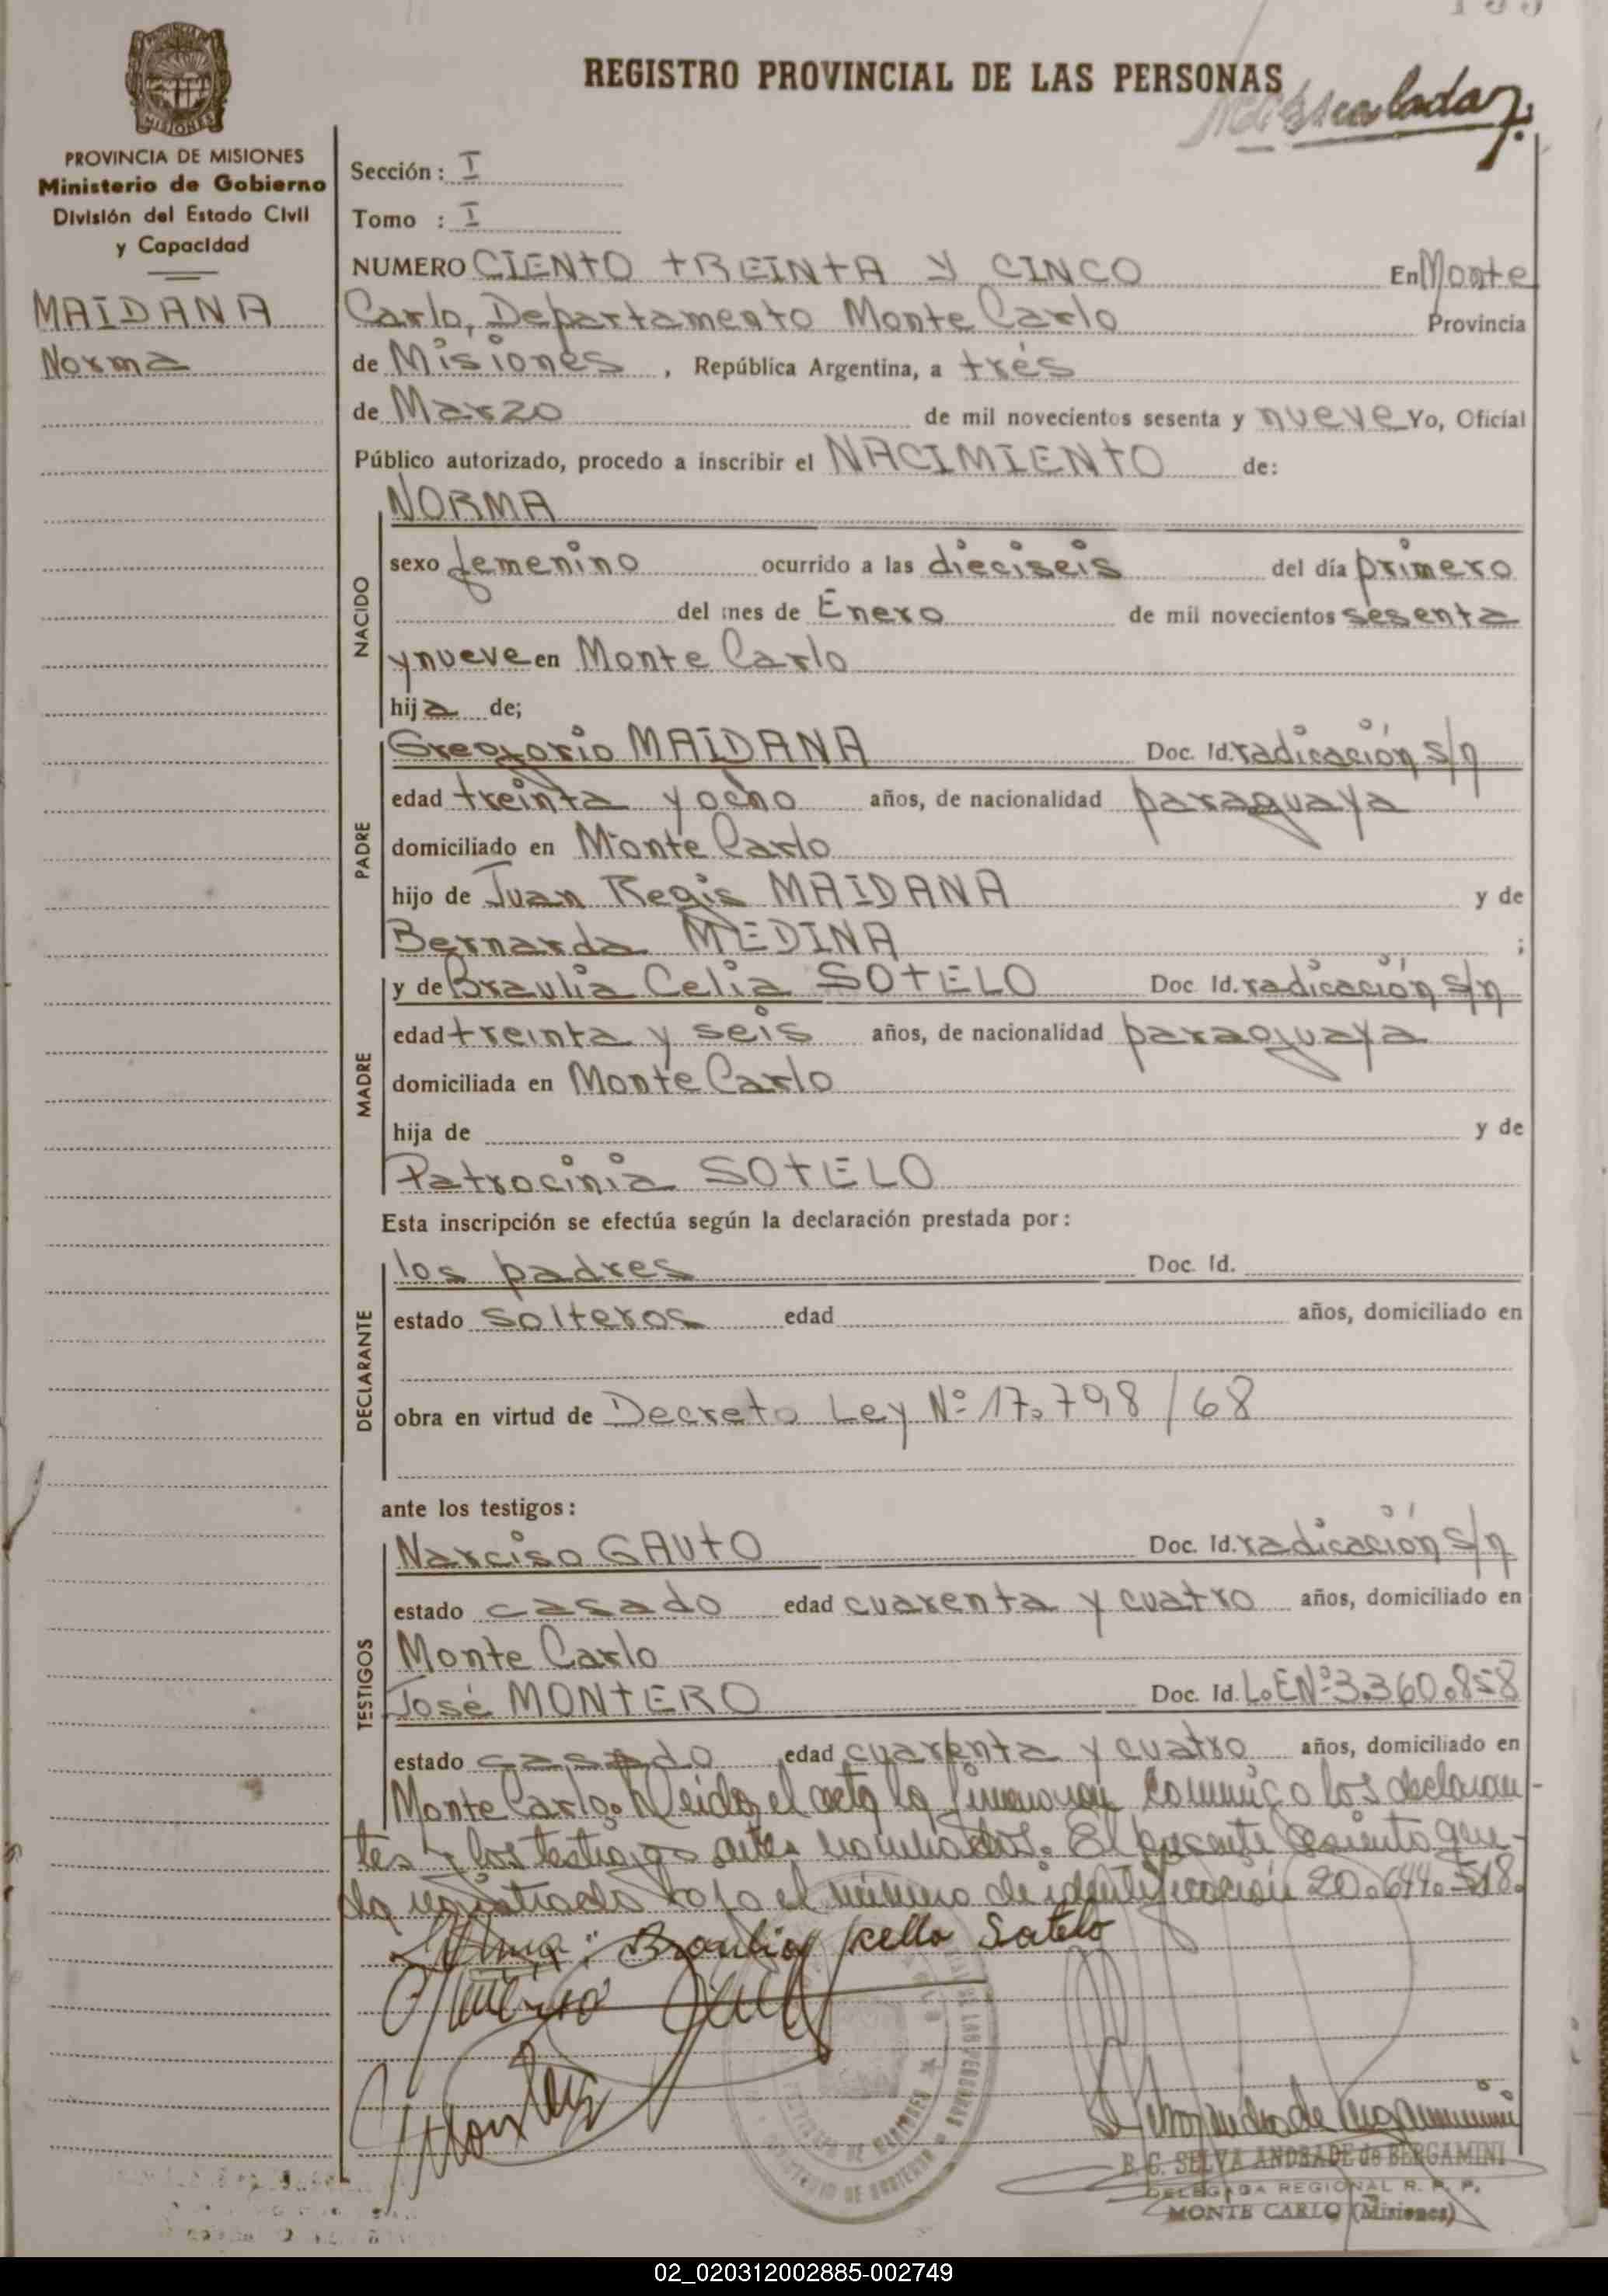 REGISTRO PROVINCIAL DE LAS PERSONAS
MISIONES
PROVINCIA DE MISIONES
Ministerio de Gobierno
División del Estado Civil
y Capacidad
MAIDANA
Norma
Sección: I
Tomo : I
NUMERO CIENTO TREINTA Y CINCO En Monte
Carlo, Departamento Monte Carlo Provincia
de Misiones, República Argentina, a tres
de Marzo de mil novecientos sesenta y nueve Yo, Oficial
Público autorizado, procedo a inscribir el NACIMIENTO de:
NACIDO
NORMA
sexo femenino ocurrido a las dieciseis del día primero
del mes de Enero de mil novecientos sesenta
y nueve en Monte Carlo
hija de;
PADRE
Gregorio MAIDANA Doc. Id. radicación s/n
edad treinta y ocho años, de nacionalidad paraguaya
domiciliado en Monte Carlo
hijo de Juan Regis MAIDANA y de
Bernarda MEDINA ;
MADRE
y de Braulia Celia SOTELO Doc Id. radicación s/n
edad treinta y seis años, de nacionalidad paraguaya
domiciliada en Monte Carlo
hija de y de
Patrocinia SOTELO
Esta inscripción se efectúa según la declaración prestada por:
DECLARANTE
los padres Doc. Id.
estado solteros edad años, domiciliado en
obra en virtud de Decreto Ley Nº 17.798/68
ante los testigos:
TESTIGOS
Narciso GAUTO Doc. Id. radicación s/n
estado casado edad cuarenta y cuatro años, domiciliado en
Monte Carlo
José MONTERO Doc. Id. L.E Nº 3.360.858
estado casado edad cuarenta y cuatro años, domiciliado en
Monte Carlo. Leida el acta la firman conmigo los declaran-
tes y los testigos antes nombrados. El presente asiento que-
da registrado bajo el número de identificación 20.644.518.
Braulia Sotelo
B. C. SELVA ANDRADE de BERGAMINI
DELEGADA REGIONAL R. P. P.
MONTE CARLO (Misiones)
02_020312002885-002749